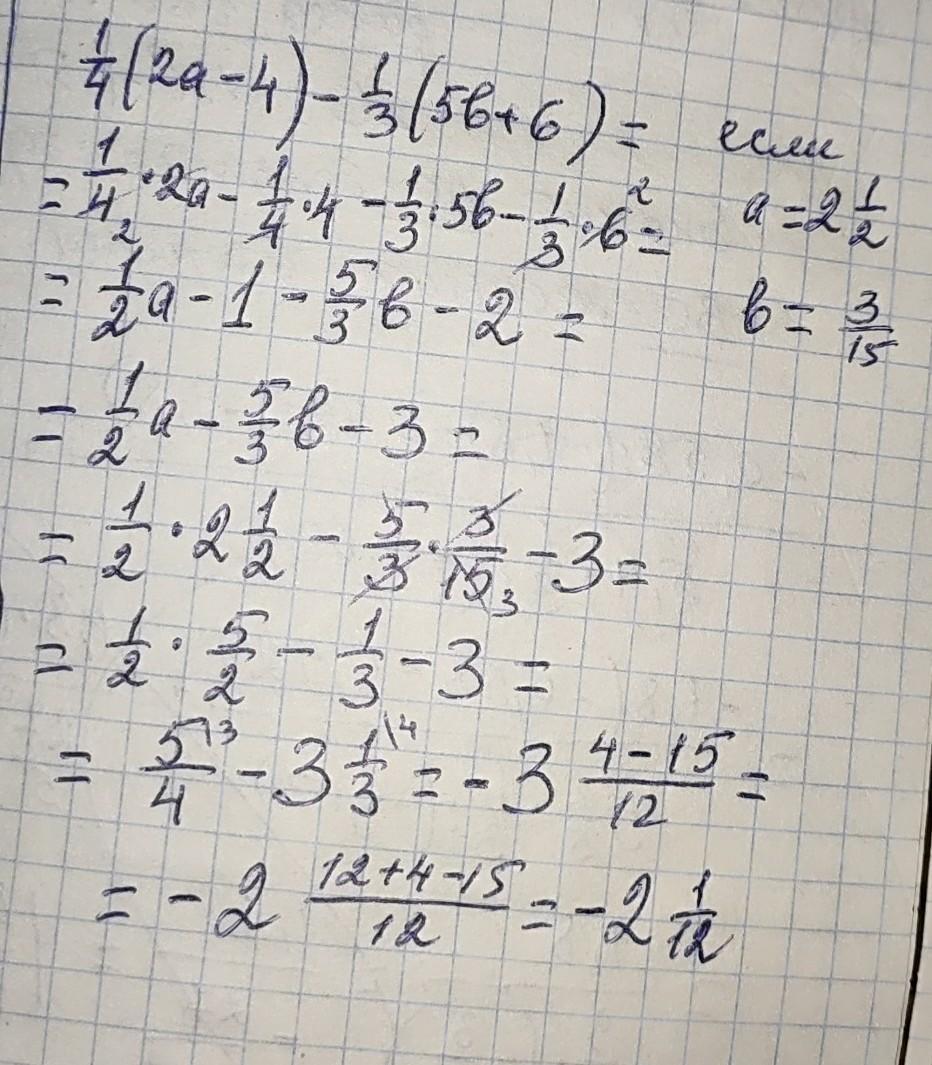 1/4(2a-4)-1/3(5b+6)= если
=1/4₂·2a-1/4·4-1/3·5b-1/3·6²= a=2 1/2
=1/2a-1-5/3b-2= b=3/15
=1/2a-5/3b-3=
=1/2·2 1/2-5/3·3/15₃-3=
=1/2·5/2-1/3-3=
=5\3/4-3 1\4/3=-3 4-15/12=
=-2 12+4-15/12=-2 1/12